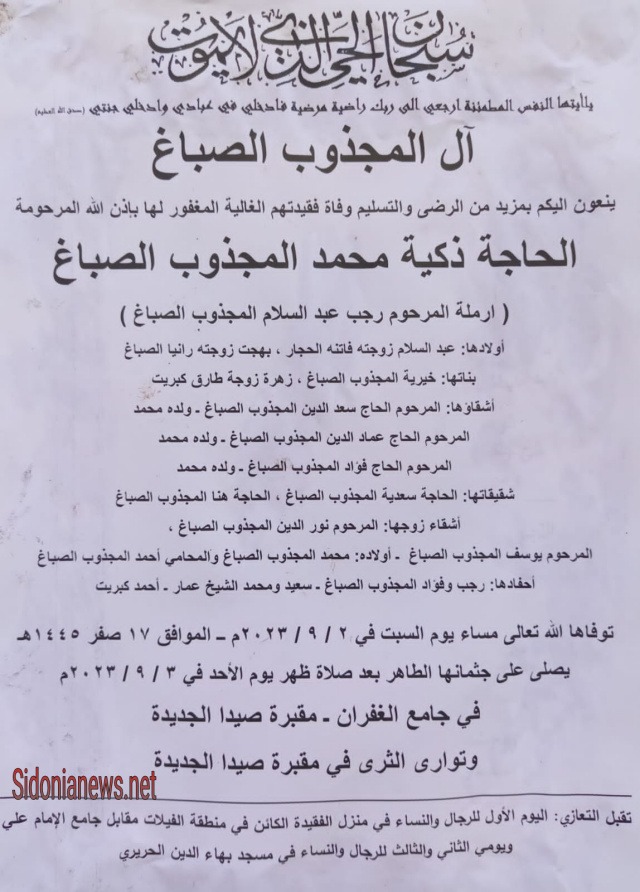 سبحان الحي الذي لا يموت
ياأيتها النفس المطمئنة ارجعي الى ربك راضية مرضية فادخلي في عبادي وادخلي جنتي (صدق الله العظيم)
آل المجذوب الصباغ
ينعون اليكم بمزيد من الرضى والتسليم وفاة فقيدتهم الغالية المغفور لها بإذن الله المرحومة
الحاجة ذكية محمد المجذوب الصباغ
( ارملة المرحوم رجب عبد السلام المجذوب الصباغ )
أولادها: عبد السلام زوجته فاتنه الحجار ، بهجت زوجته رانيا الصباغ
بناتها: خيرية المجذوب الصباغ ، زهرة زوجة طارق كبريت
أشقاؤها: المرحوم الحاج سعد الدين المجذوب الصباغ ـ ولده محمد
المرحوم الحاج عماد الدين المجذوب الصباغ ـ ولده محمد
المرحوم الحاج فؤاد المجذوب الصباغ ـ ولده محمد
شقيقاتها: الحاجة سعدية المجذوب الصباغ ، الحاجة هنا المجذوب الصباغ
أشقاء زوجها: المرحوم نور الدين المجذوب الصباغ ،
المرحوم يوسف المجذوب الصباغ ـ أولاده: محمد المجذوب الصباغ والمحامي أحمد المجذوب الصباغ
أحفادها: رجب وفؤاد المجذوب الصباغ ـ سعيد ومحمد الشيخ عمار ـ أحمد كبريت
توفاها الله تعالى مساء يوم السبت في ٢ / ٩ / ٢٠٢٣م ــ الموافق ١٧ صفر ١٤٤٥هـ
يصلى على جثمانها الطاهر بعد صلاة ظهر يوم الأحد في ٣ / ٩ / ٢٠٢٣م
في جامع الغفران ـ مقبرة صيدا الجديدة
وتوارى الثرى في مقبرة صيدا الجديدة
Sidonianews.net
تقبل التعازي: اليوم الأول للرجال والنساء في منزل الفقيدة الكائن في منطقة الفيلات مقابل جامع الإمام علي
ويومي الثاني والثالث للرجال والنساء في مسجد بهاء الدين الحريري